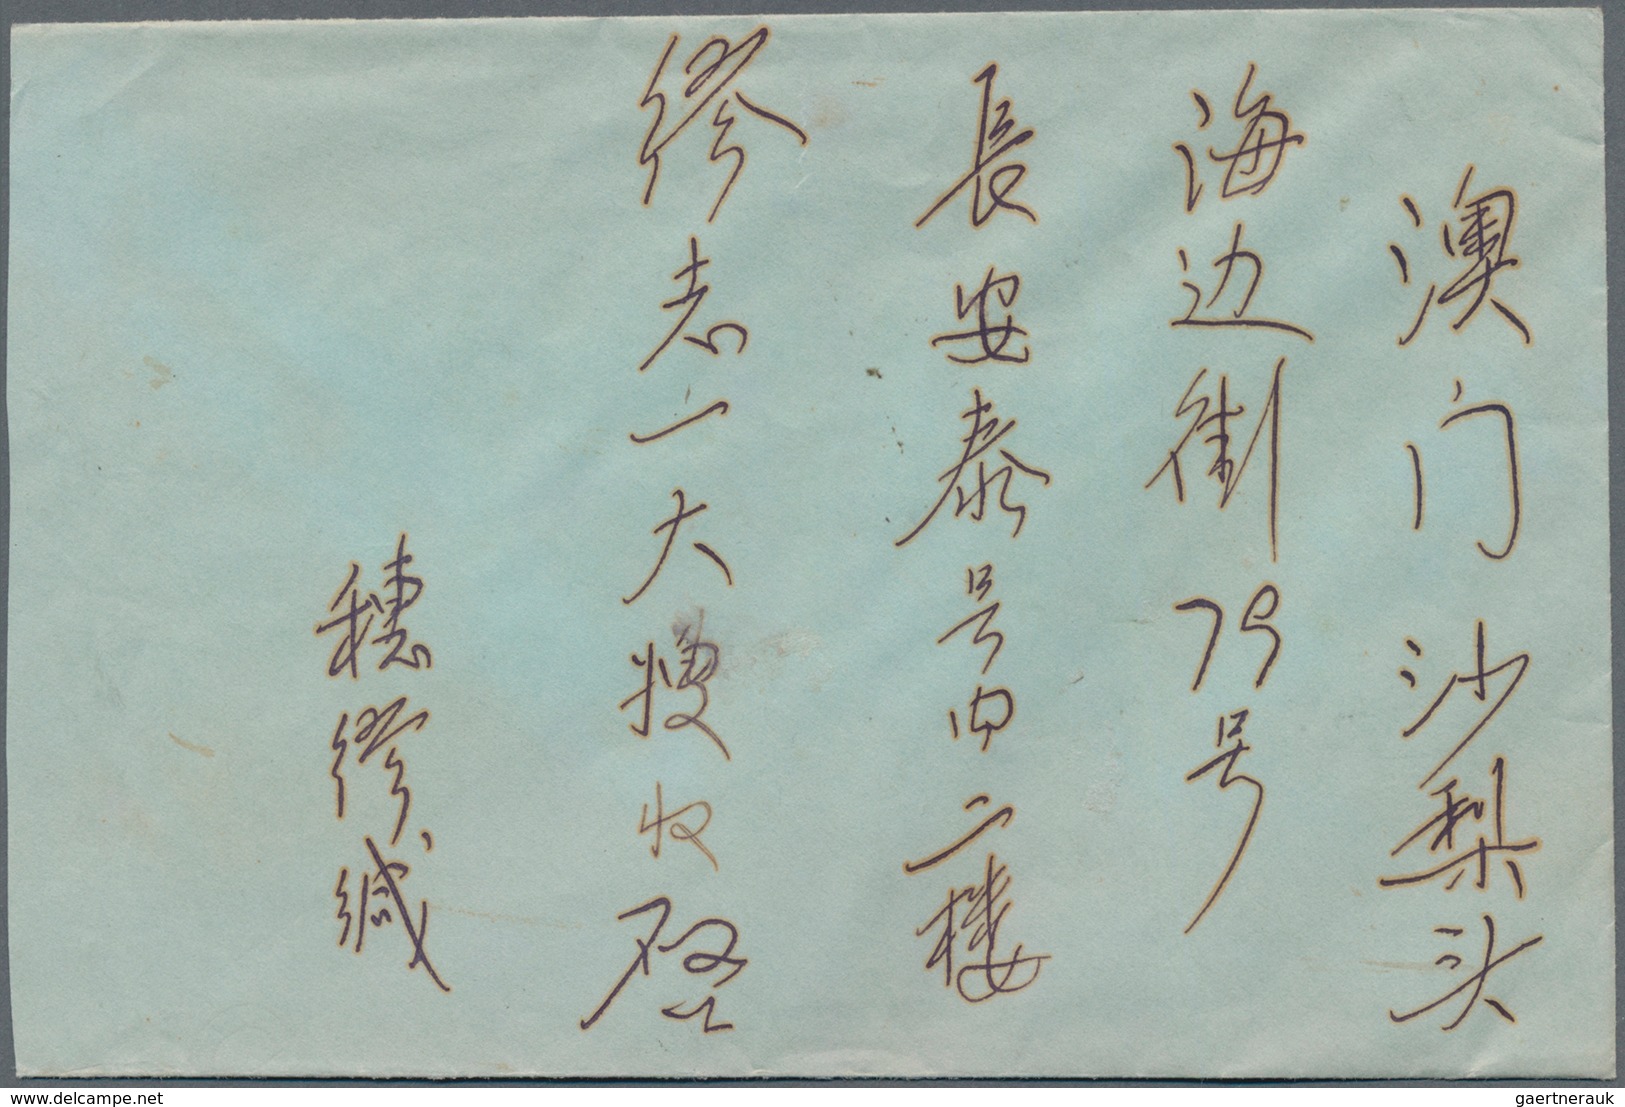 澳门沙梨头
海边街79号
長安泰号内二楼
缪志一大嫂收启
穗缪缄
delcampe.net
gaertnerauk